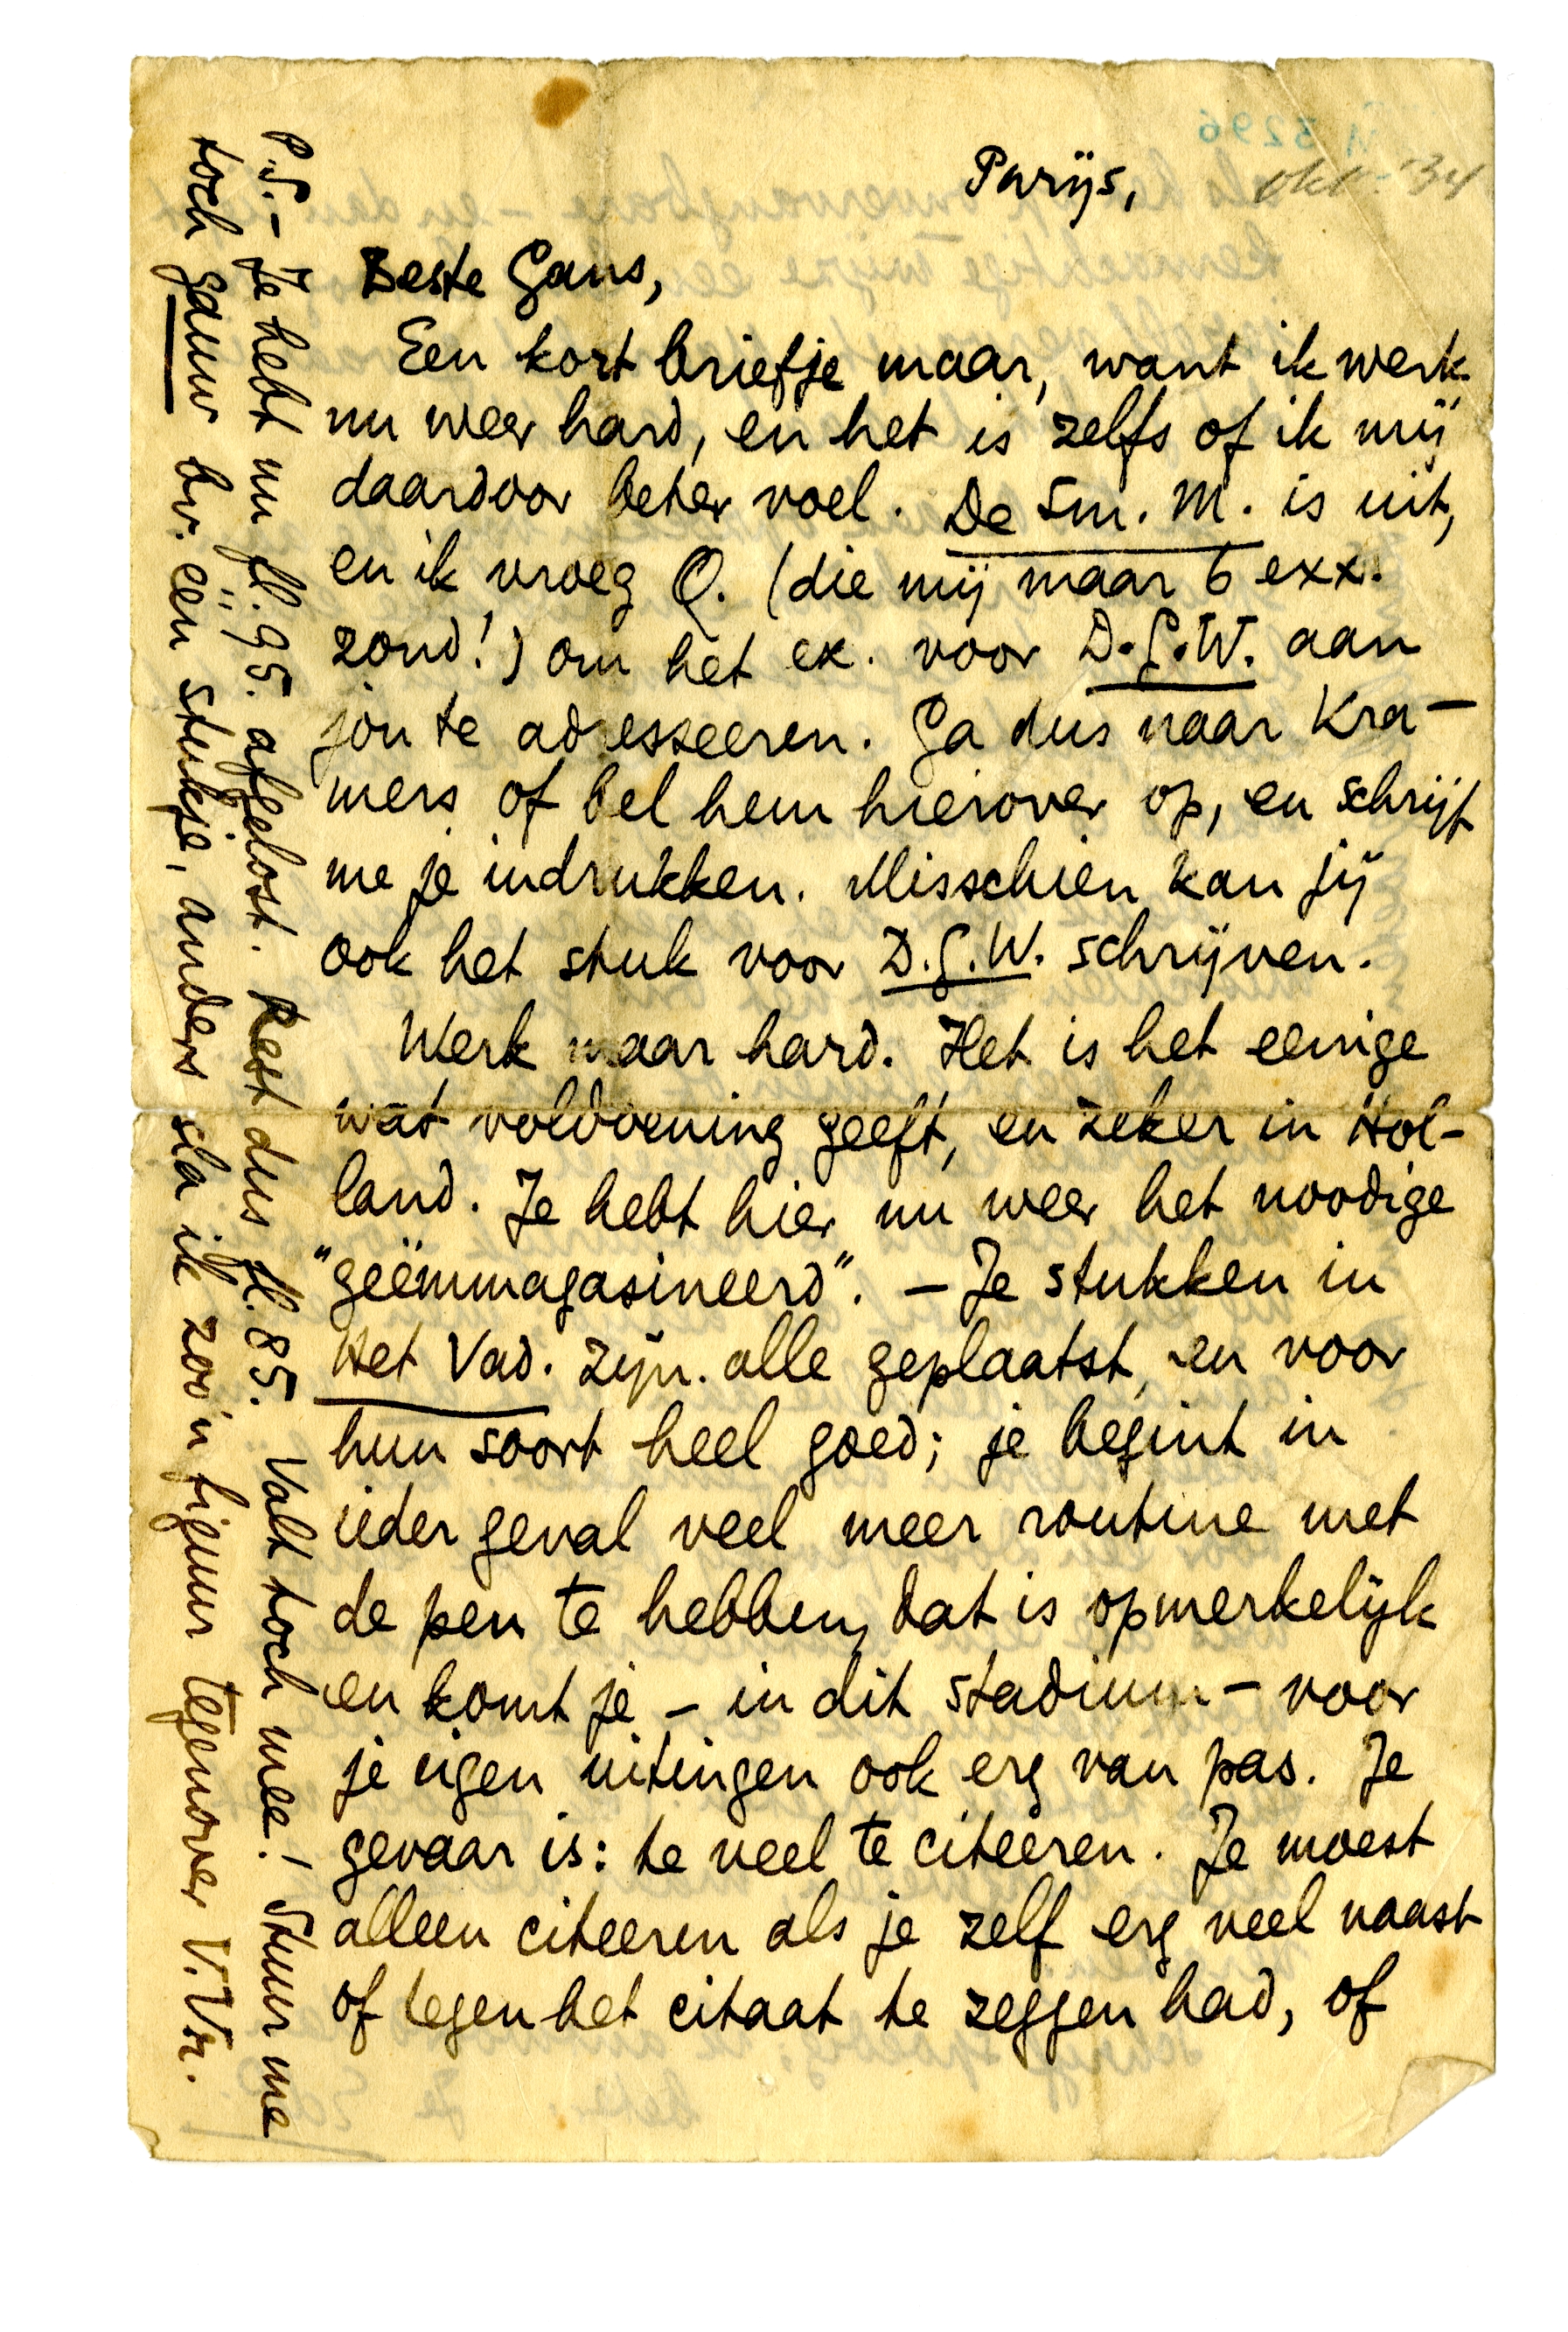 Parijs, okt. '34
Beste Gans,
Een kort briefje maar, want ik werk
nu weer hard, en het is zelfs of ik mij
daardoor beter voel. De Sm. M. is uit,
en ik vroeg Q. (die mij maar 6 exx.
zond!) om het ex. voor D.G.W. aan
jou te adresseeren. Ga dus naar Kra-
mers of bel hem hierover op, en schrijf
me je indrukken. Misschien kan jij
ook het stuk voor D.G.W. schrijven.
Werk maar hard. Het is het eenige
wat voldoening geeft, en zeker in Hol-
land. Je hebt hier nu weer het noodige
"geëmmagasineerd". – Je stukken in
Het Vad. zijn alle geplaatst, en voor
hun soort heel goed; je begint in
ieder geval veel meer routine met
de pen te hebben, dat is opmerkelijk
en komt je – in dit stadium – voor
je eigen uitingen ook erg van pas. Je
gevaar is: te veel te citeeren. Je moest
alleen citeeren als je zelf erg veel naast
of tegen het citaat te zeggen had, of
P.S. – Je hebt nu fl. 95. afgelost. Rest dus fl. 85. Valt toch mee! Stuur me
toch gauw bv. één stukje, anders sla ik zoo'n figuur tegenover V.Vr.